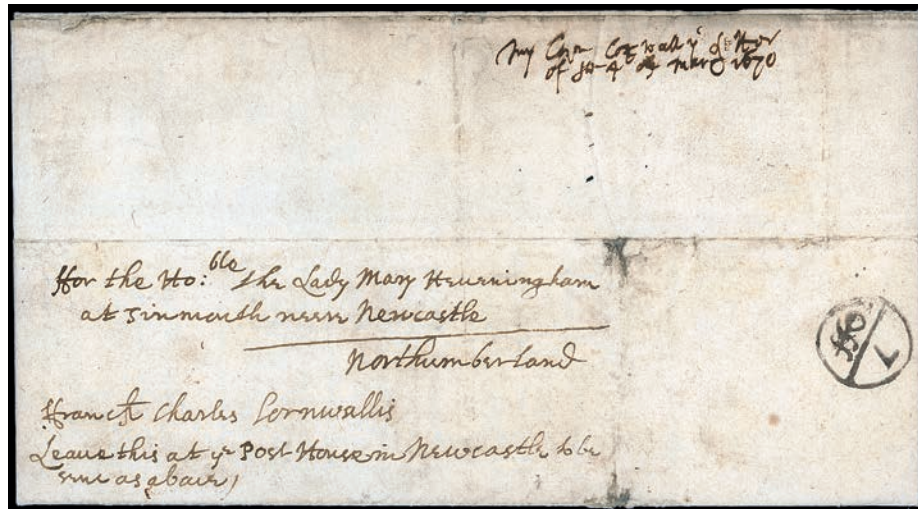 my Cosn
of 4 of mar 1670
ffor the Ho:ble the Lady Mary Heveningham
at Tinmouth neere Newcastle
Northumberland
ffranck Charles Cornwallis
Leave this at ye Post House in Newcastle to be
as above